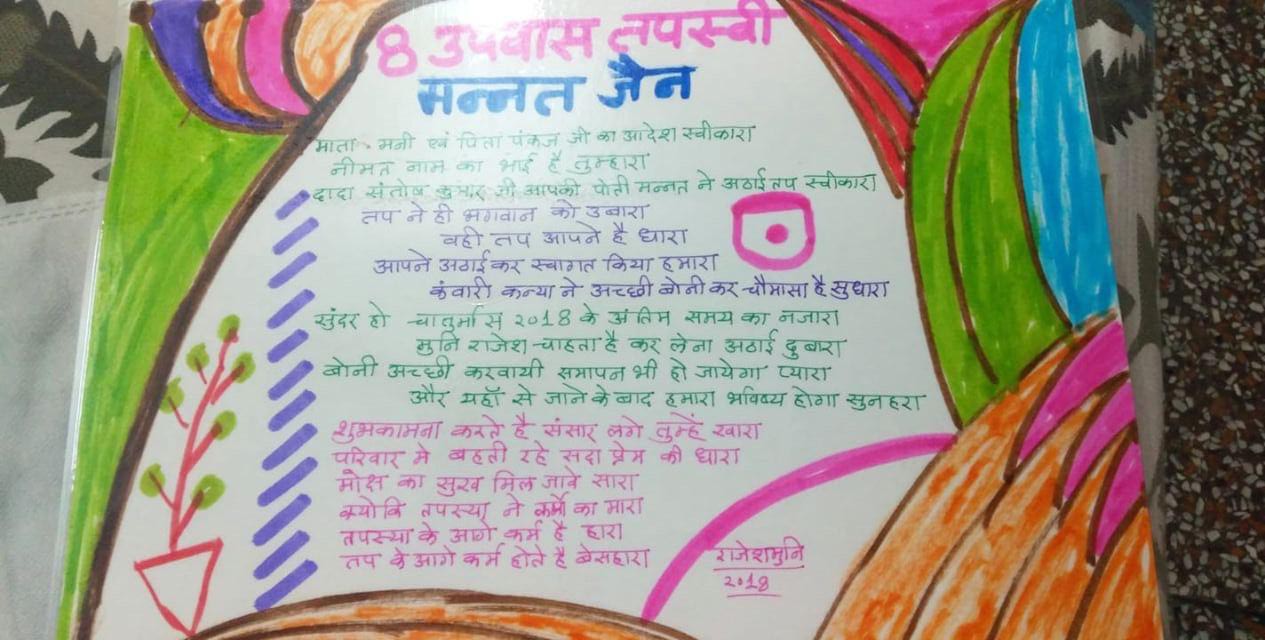 8 उपवास तपस्वी
मन्नत जैन
माता मनी एवं पिता पंकज जी का आदेश स्वीकारा
नीमत नाम का भाई है तुम्हारा
दादा संतोष कुमार जी आपकी पोती मन्नत ने अठाई तप स्वीकारा
तप ने ही भगवान को उबारा
वही तप आपने है धारा
आपने अठाई कर स्वागत किया हमारा
कंवारी कन्या ने अच्छी बोनी कर चौमासा है सुधारा
सुंदर हो चातुर्मास २०18 के अंतिम समय का नजारा
मुनि राजेश चाहता है कर लेना अठाई दुबारा
बोनी अच्छी करवायी समापन भी हो जायेगा प्यारा
और यहाँ से जाने के बाद हमारा भविष्य होगा सुनहरा
शुभकामना करते है संसार लगे तुम्हें खारा
परिवार मे बहती रहे सदा प्रेम की धारा
मोक्ष का सुख मिल जावे सारा
क्योकि तपस्या ने कर्मो का मारा
तपस्या के आगे कर्म है हारा
तप के आगे कर्म होते है बेसहारा
राजेशमुनि
२०18